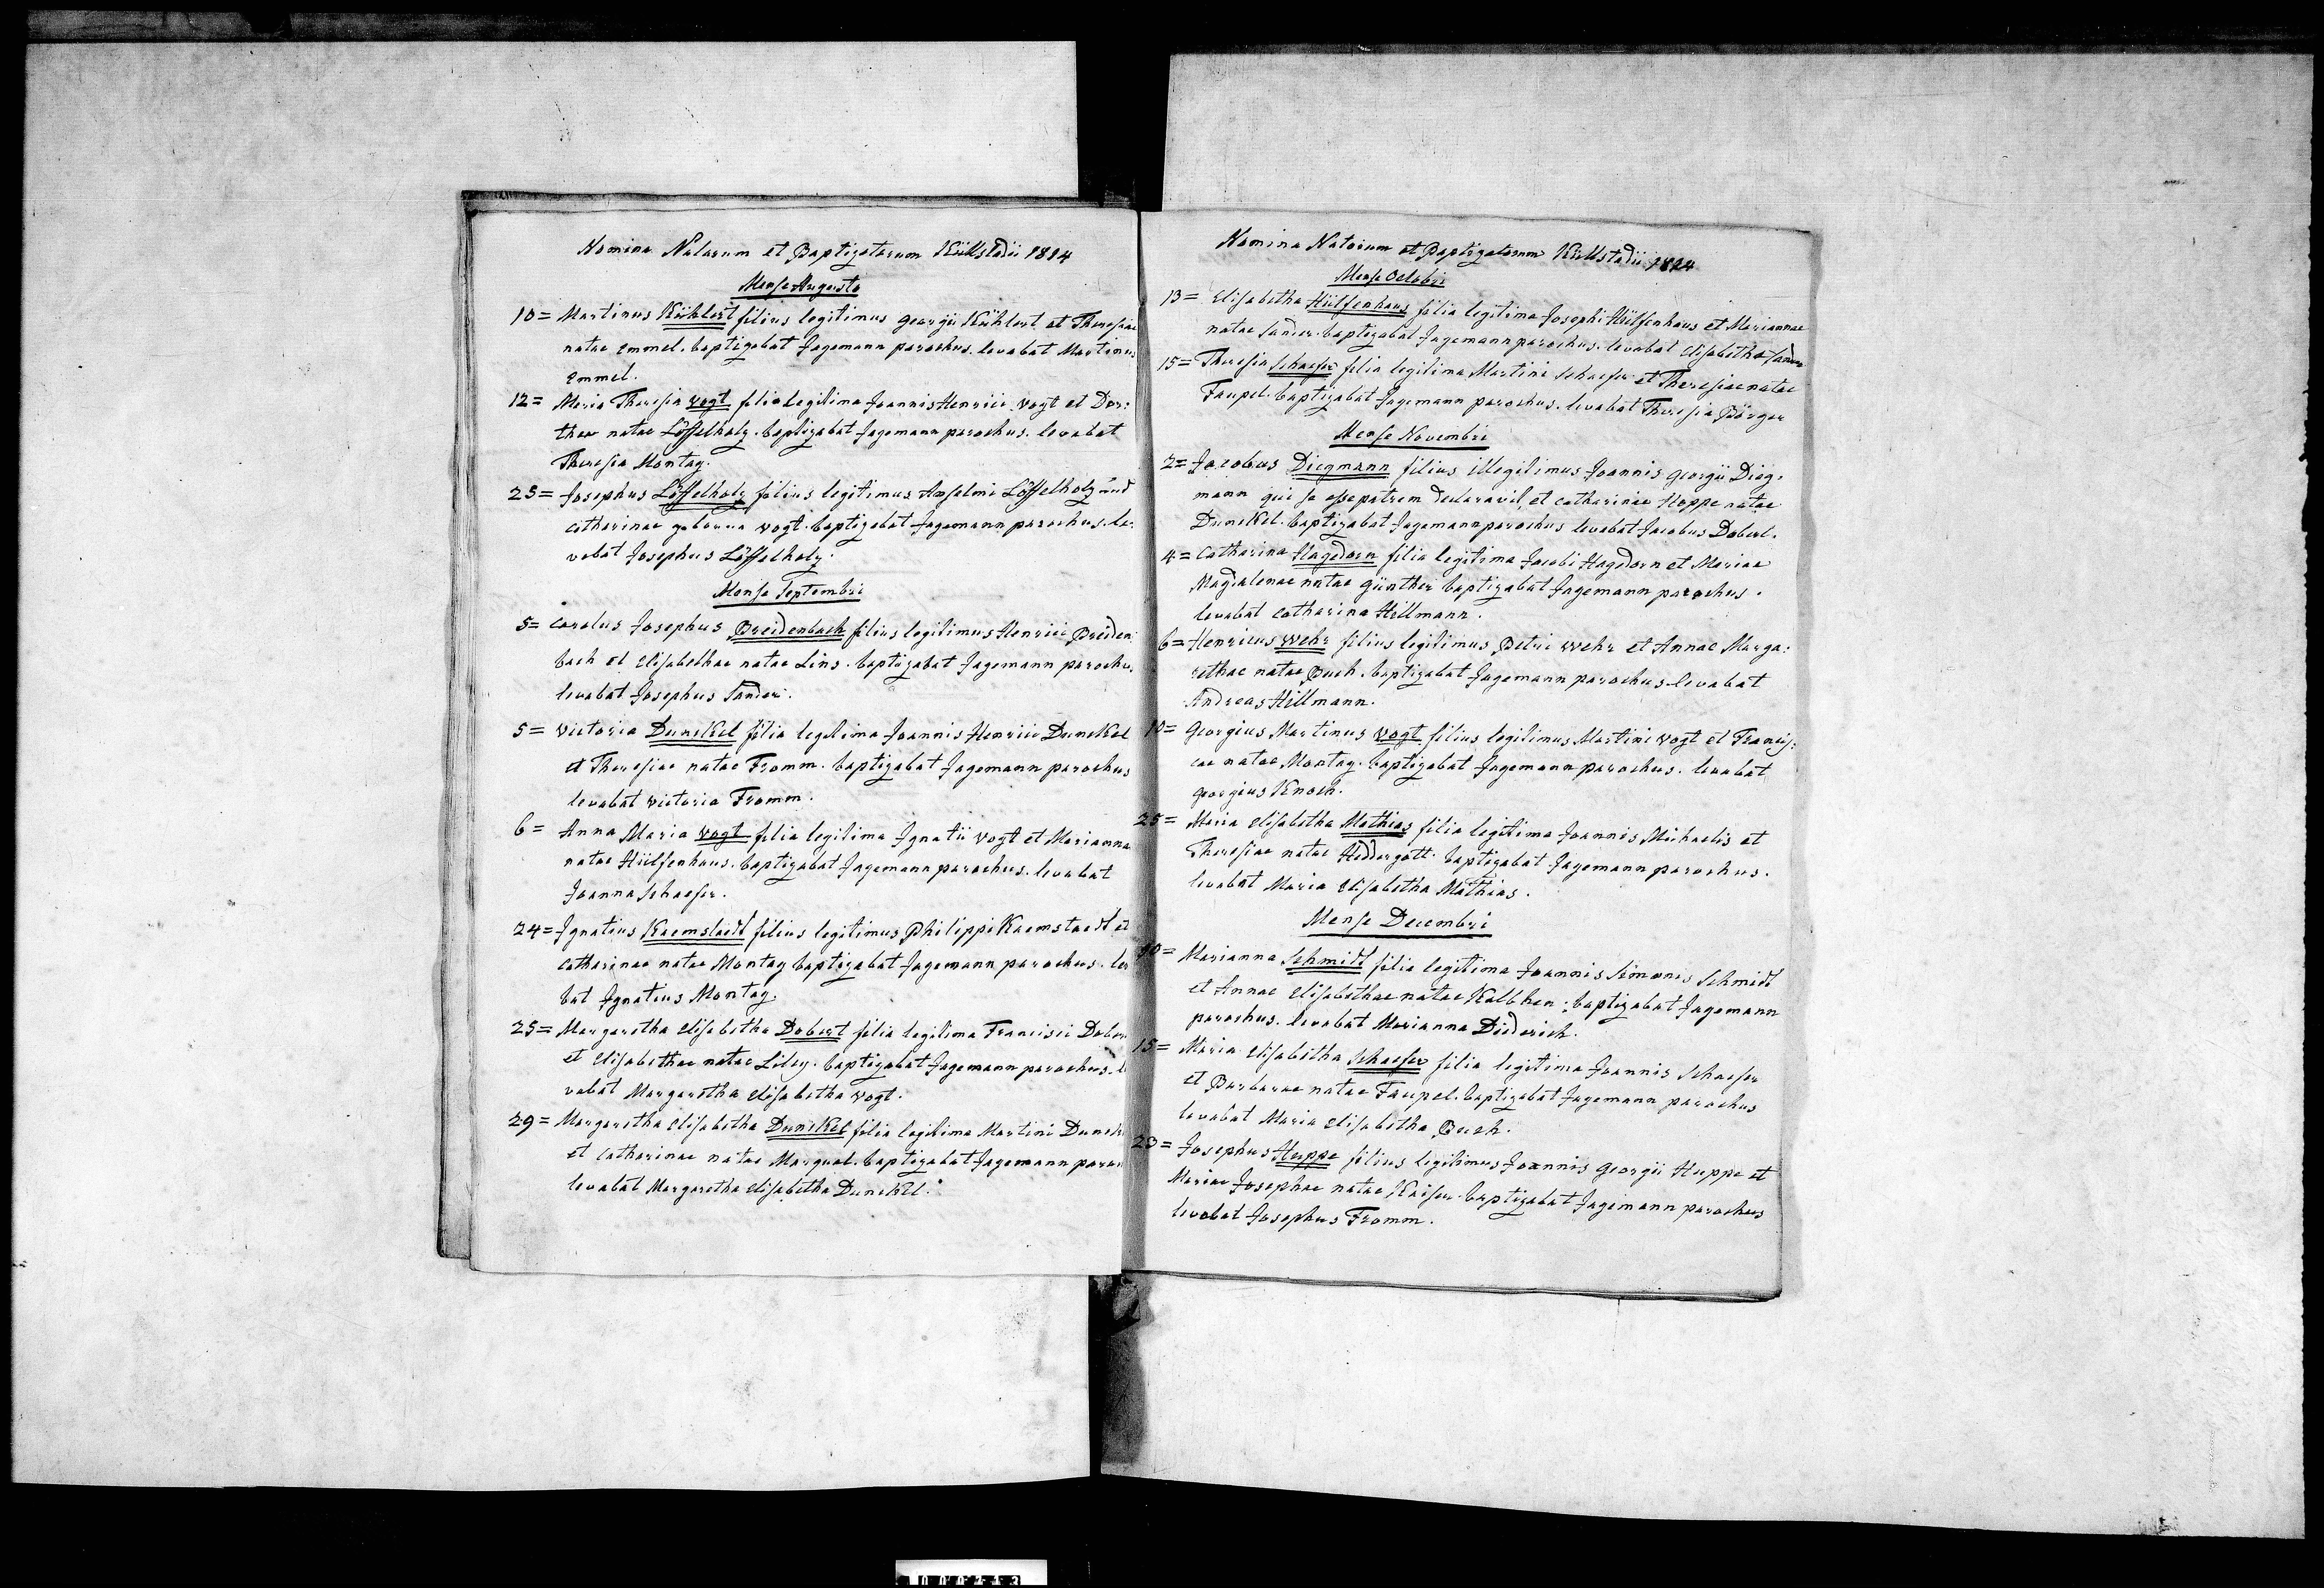 Nomina Natorum et Baptizatorum Küllstadii 1814
Mense Augusto
10= Martinus Kühlert filius legitimus Georgii Kühlert et Theresiae
natae Emmel. baptizabat Jagemann parochus. levabat Martinus
Emmel.
12= Maria Theresia Vogt filia legitima Joannis Henrici Vogt et Doro:
theae natae Löffelholz. baptizabat Jagemann parochus. levabat
Theresia Montag.
25= Josephus Löffelholz filius legitimus Anselmi Löffelholz und
Catharinae geborna Vogt. baptizabat Jagemann parochus. le:
vabat Josephus Löffelholz.
Mense Septembri
5= Carolus Josephus Breidenbach filius legitimus Henrici Breiden
bach et Elisabethae natae Lins. baptizabat Jagemann parochu.
levabat Josephus Sander.
5= Victoria Dunckel filia legitima Joannis Henrici Dunckel
et Theresiae natae Fromm. baptizabat Jagemann parochus
levabat Victoria Fromm.
6= Anna Maria Vogt filia legitima Ignatii Vogt et Marianna
natae Hülfenhaus. baptizabat Jagemann parochus. levabat
Joanna Schaefer.
24= Ignatius Kaemstaedt filius legitimus Philippi Kaemstaedt et
Catharinae natae Montag baptizabat Jagemann parochus. lev
bat Ignatius Montag.
25= Margaretha Elisabetha Dobert filia legitima Francisci Dober
et Elisabethae natae baptizabat Jagemann parochus. l
vabat Margaretha Elisabetha Vogt.
29= Margaretha Elisabetha Dunckel filia legitima Martini Dunck
et Catharinae natae baptizabat Jagemann paroc
levabat Margaretha Elisabetha Dunckel.
Nomina Natorum et Baptizatorum Küllstadii 1814
Mense Octobri
13= Elisabetha Hülfenhaus filia legitima Josephi Hülfenhaus et Mariannae
natae Sander. baptizabat Jagemann parochus. levabat Elisabetha Sander
15= Theresia Schaefer filia legitima Martini Schaefer et Theresiae natae
Faupel. baptizabat Jagemann parochus. levabat Theresia Börger
Mense Novembri
2= Jacobus Diegmann filius illegitimus Joannis Georgii Dieg:
mann qui se esse patrem declaravit, et Catharinae Hoppe natae
Dunckel. baptizabat Jagemann parochus levabat Jacobus Dobert.
4= Catharina Hagedorn filia legitima Jacobi Hagedorn et Mariae
Magdalenae natae Günther baptizabat Jagemann parochus.
levabat Catharina Hillmann.
6= Henricus Wehr filius legitimus Petri Wehr et Annae Marga:
rethae natae Buch. baptizabat Jagemann parochus levabat
Andreas Hillmann.
10= Georgius Martinus Vogt filius legitimus Martini Vogt et Francis:
cae natae Montag. baptizabat Jagemann parochus. levabat
Georgius Knoch.
25= Maria Elisabetha Mathias filia legitima Joannis Michaelis et
Theresiae natae Heddergott. baptizabat Jagemann parochus.
levabat Maria Elisabetha Mathias.
Mense Decembri
10= Marianna Schmidt filia legitima Joannis Simonis Schmidt
et Annae Elisabethae natae Kalbhen: baptizabat Jagemann
parochus. levabat Marianna Diederich.
15= Maria Elisabetha Schaefer filia legitima Joannis Schaefer
et Barbarae natae Faupel. baptizabat Jagemann parochus
levabat Maria Elisabetha Buch.
23= Josephus Huppe filius legitimus Joannis Georgii Huppe et
Mariae Josephae natae Kaiser. baptizabat Jagemann parochus
levabat Josephus Fromm.